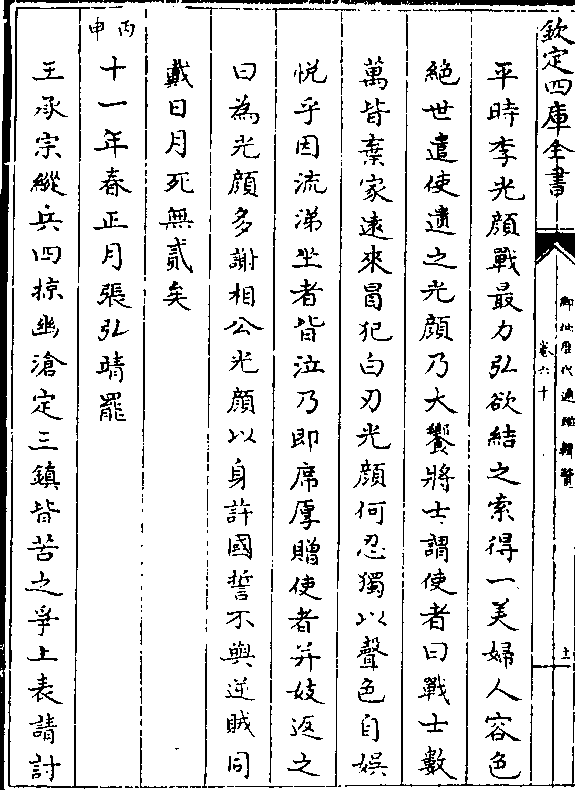 欽定四庫全書
御批歷代通鑑輯覽
卷六十
平時李光顔戰最力弘欲結之索得一美婦人容色
絶世遣使遺之光顔乃大饗將士謂使者曰戰士數
萬皆棄家逺來冒犯白刃光顔何忍獨以聲色自娯
悦乎因流涕坐者皆泣乃即席厚贈使者并妓返之
曰為光顔多謝相公光顔以身許國誓不與逆賊同
戴日月死無貳矣
丙申
十一年春正月張弘靖罷
王承宗縱兵四掠幽滄定三鎮皆苦之爭上表請討